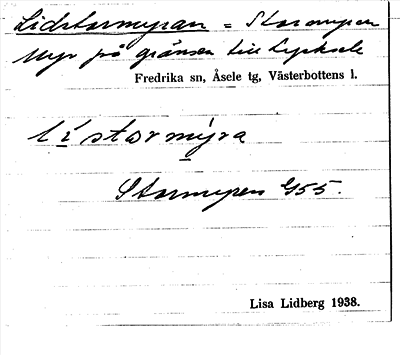 Lidstormyran = Stormyren
Myr på gränsen till Lycksele
Fredrika sn, Åsele tg, Västerbottens l.
lístormýra
Stormyren G55.
Lisa Lidberg 1938.